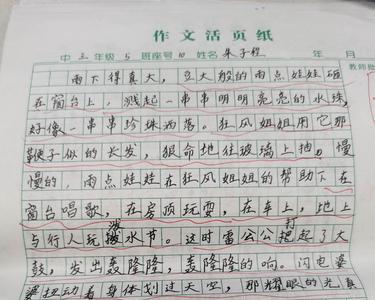 作文活页纸
中 三 年级 5 班座号 10 姓名 朱子程 年 月
教师批
雨下得真大，豆大般的雨点娃娃砸
在窗台上，溅起一串串明明亮亮的水珠，
好像一串串珍珠洒落。狂风姐姐用它那
鞭子似的长发，狠命地往玻璃上抽。慢
慢的，雨点娃娃在狂风姐姐的帮助下在
窗台唱歌，在房顶玩耍，在车上，地上
泼 打
与行人玩拨水节。这时雷公公把起了大
鼓，发出轰隆隆，轰隆隆的响。闪电婆
婆扭动着身体划过天空，那耀眼的光真